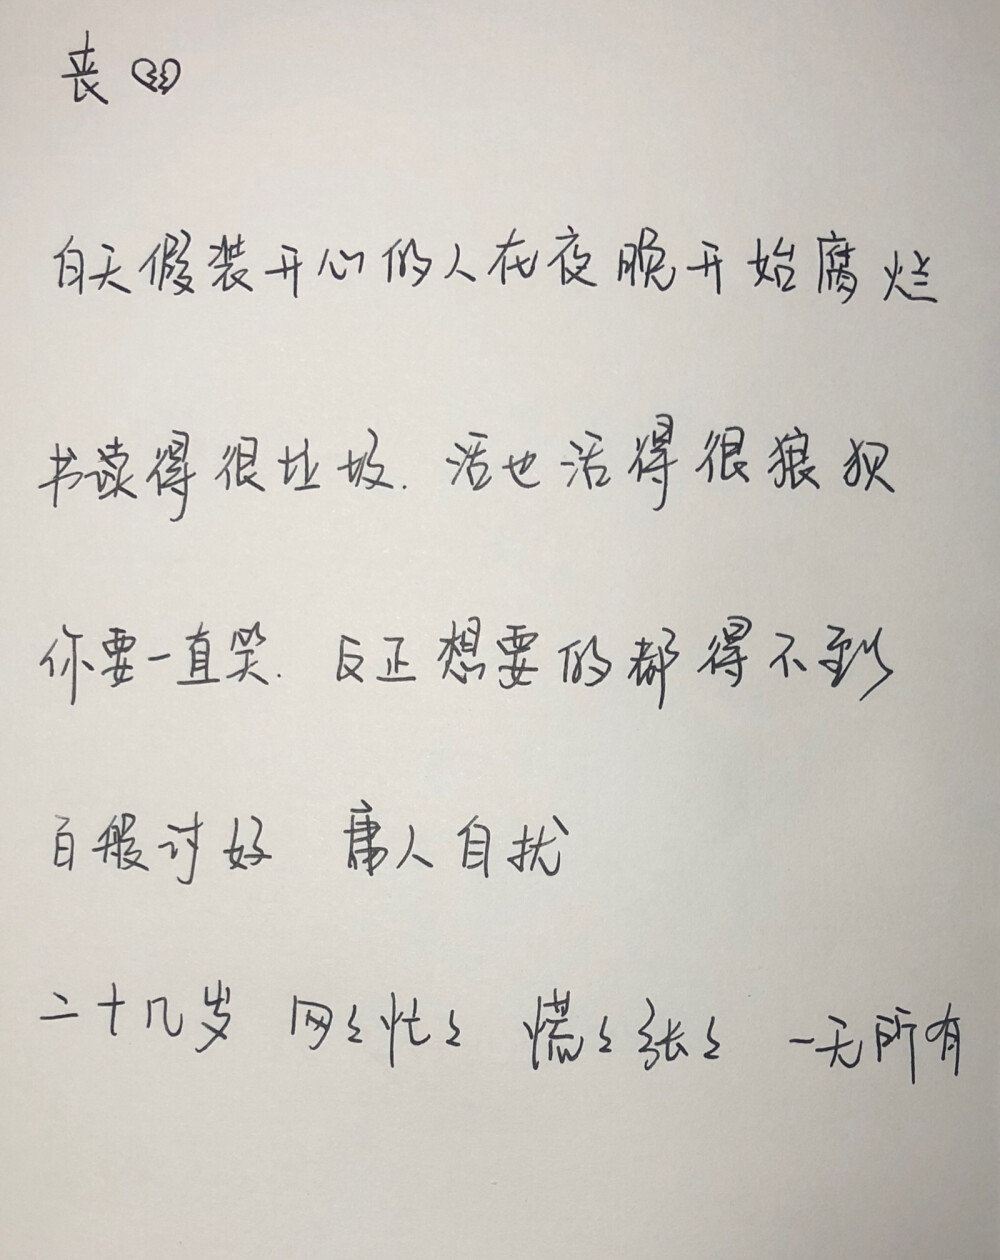 丧 💔
白天假装开心的人在夜晚开始腐烂
书读得很垃圾. 活也活得很狼狈
你要一直笑. 反正想要的都得不到
百般讨好 庸人自扰
二十几岁 网々忙々 慌々张々 一无所有